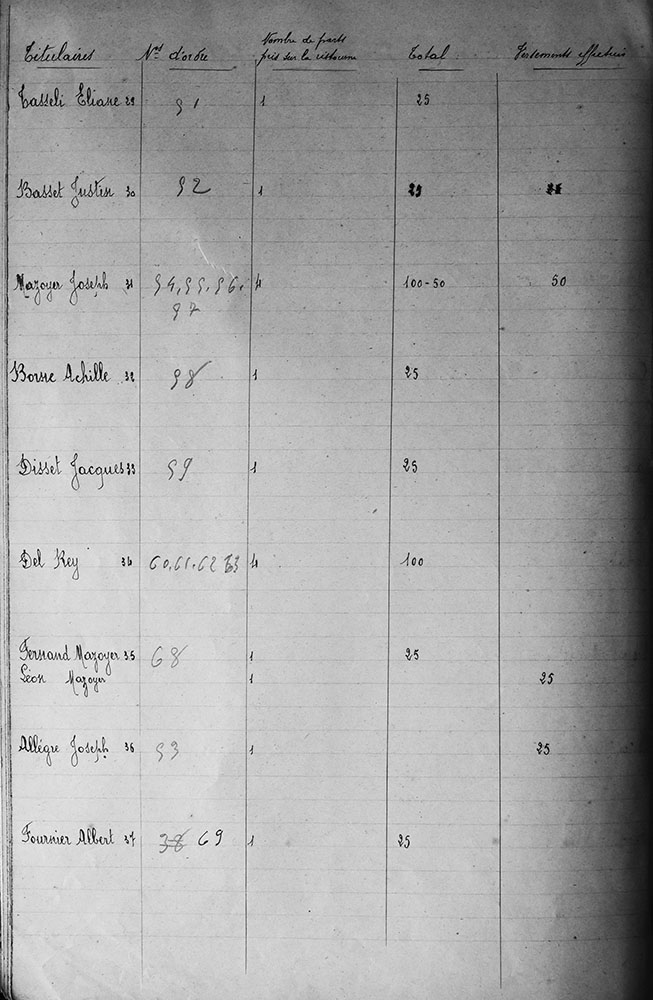 Titulaires Nos d'ordre Nombre de parts Total Versements effectués
pris sur la ristourne
Tasseli Eliane 29 51 1 25
Basset Justin 30 52 1 25
Mazoyer Joseph 31 54, 55, 56, 4 100-50 50
57
Borne Achille 32 58 1 25
Disset Jacques 33 59 1 25
Del Rey 34 60.61.62 63 4 100
Fernand Mazoyer 35 68 1 25
Léon Mazoyer 1 25
Allègre Joseph 36 53 1 25
Fournier Albert 37 38 69 1 25